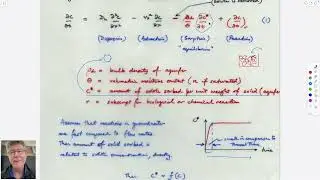 ∂c/∂t = D_L ∂²c/∂x² - v ∂c/∂x (1)
(Dispersion) (Advection) (Sorption) (Reaction)
"equilibrium"
= bulk density of aquifer
θ = volumetric moisture content (n if saturated)
C* = amount of solute sorbed per unit weight of solid (aquifer
r = subscript for biological or chemical reaction
Assume that reactions in groundwater
are fast compared to flow rates
Then amount of solid sorbed is
related to solute concentration, directly
C*
small in comparison to
Travel Time
time
Then C* = f(C)